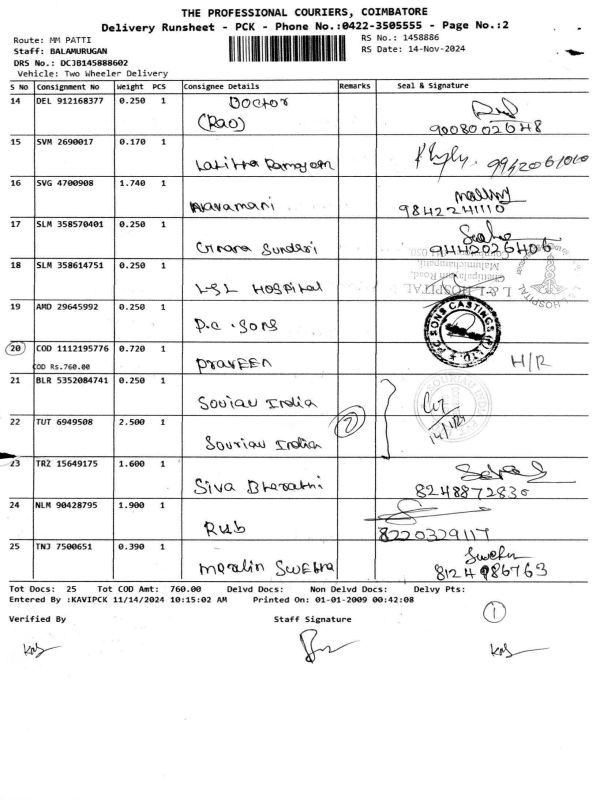 THE PROFESSIONAL COURIERS, COIMBATORE
Delivery Runsheet - PCK - Phone No.:0422-3505555 - Page No.:2
Route: MM PATTI
RS No.: 1458886
Staff: BALAMURUGAN
RS Date: 14-Nov-2024
DRS No.: DCJB145888602
Vehicle: Two Wheeler Delivery
S No Consignment No Weight PCS Consignee Details Remarks Seal & Signature
14 DEL 912168377 0.250 1 Doctor
(Rao) 9008002648
15 SVM 2690017 0.170 1
Lalitha
16 SVG 4700908 1.740 1
Navamani 9842241110
17 SLM 358570401 0.250 1
Sundari 9442026406
18 SLM 358614751 0.250 1
L&L Hospital L & L HOSPITAL
19 AMD 29645992 0.250 1
P.C. Sons SONS CASTINGS (P) LTD
20 COD 1112195776 0.720 1
COD Rs.760.00 Praveen H/R
21 BLR 5352084741 0.250 1
Souriau India
22 TUT 6949508 2.500 1 2
Souriau India
23 TRZ 15649175 1.600 1
Siva Bharathi 8248872830
24 NLM 90428795 1.900 1
Rub 8220329117
25 TNJ 7500651 0.390 1 Swetha
Merlin Swetha 8124986763
Tot Docs: 25 Tot COD Amt: 760.00 Delvd Docs: Non Delvd Docs: Delvy Pts:
Entered By :KAVIPCK 11/14/2024 10:15:02 AM Printed On: 01-01-2009 00:42:08
1
Verified By Staff Signature